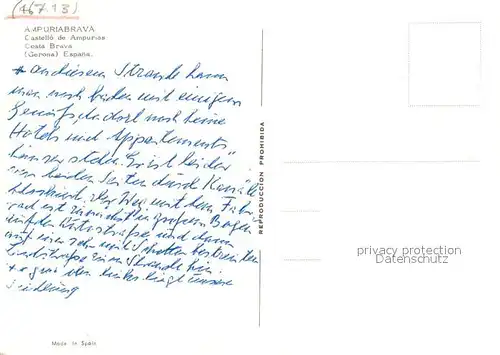 (16713)
AMPURIABRAVA
Castelló de Ampurias
Costa Brava
(Gerona) España.
* an diesem Strande kann
man noch baden mit einigem
Genuß, da dort noch keine
Hotels und Appartements
häuser stehn. Er ist leider
von beiden Seiten durch Kanäle
blockiert. Der Weg mit dem Fahr
rad ist zunächst großem Bogen
auf der und dann
mit
Landstraße zum Strande hin.
links liegt unsere
Siedlung
REPRODUCCION PROHIBIDA
privacy protection
Datenschutz
Made in Spain